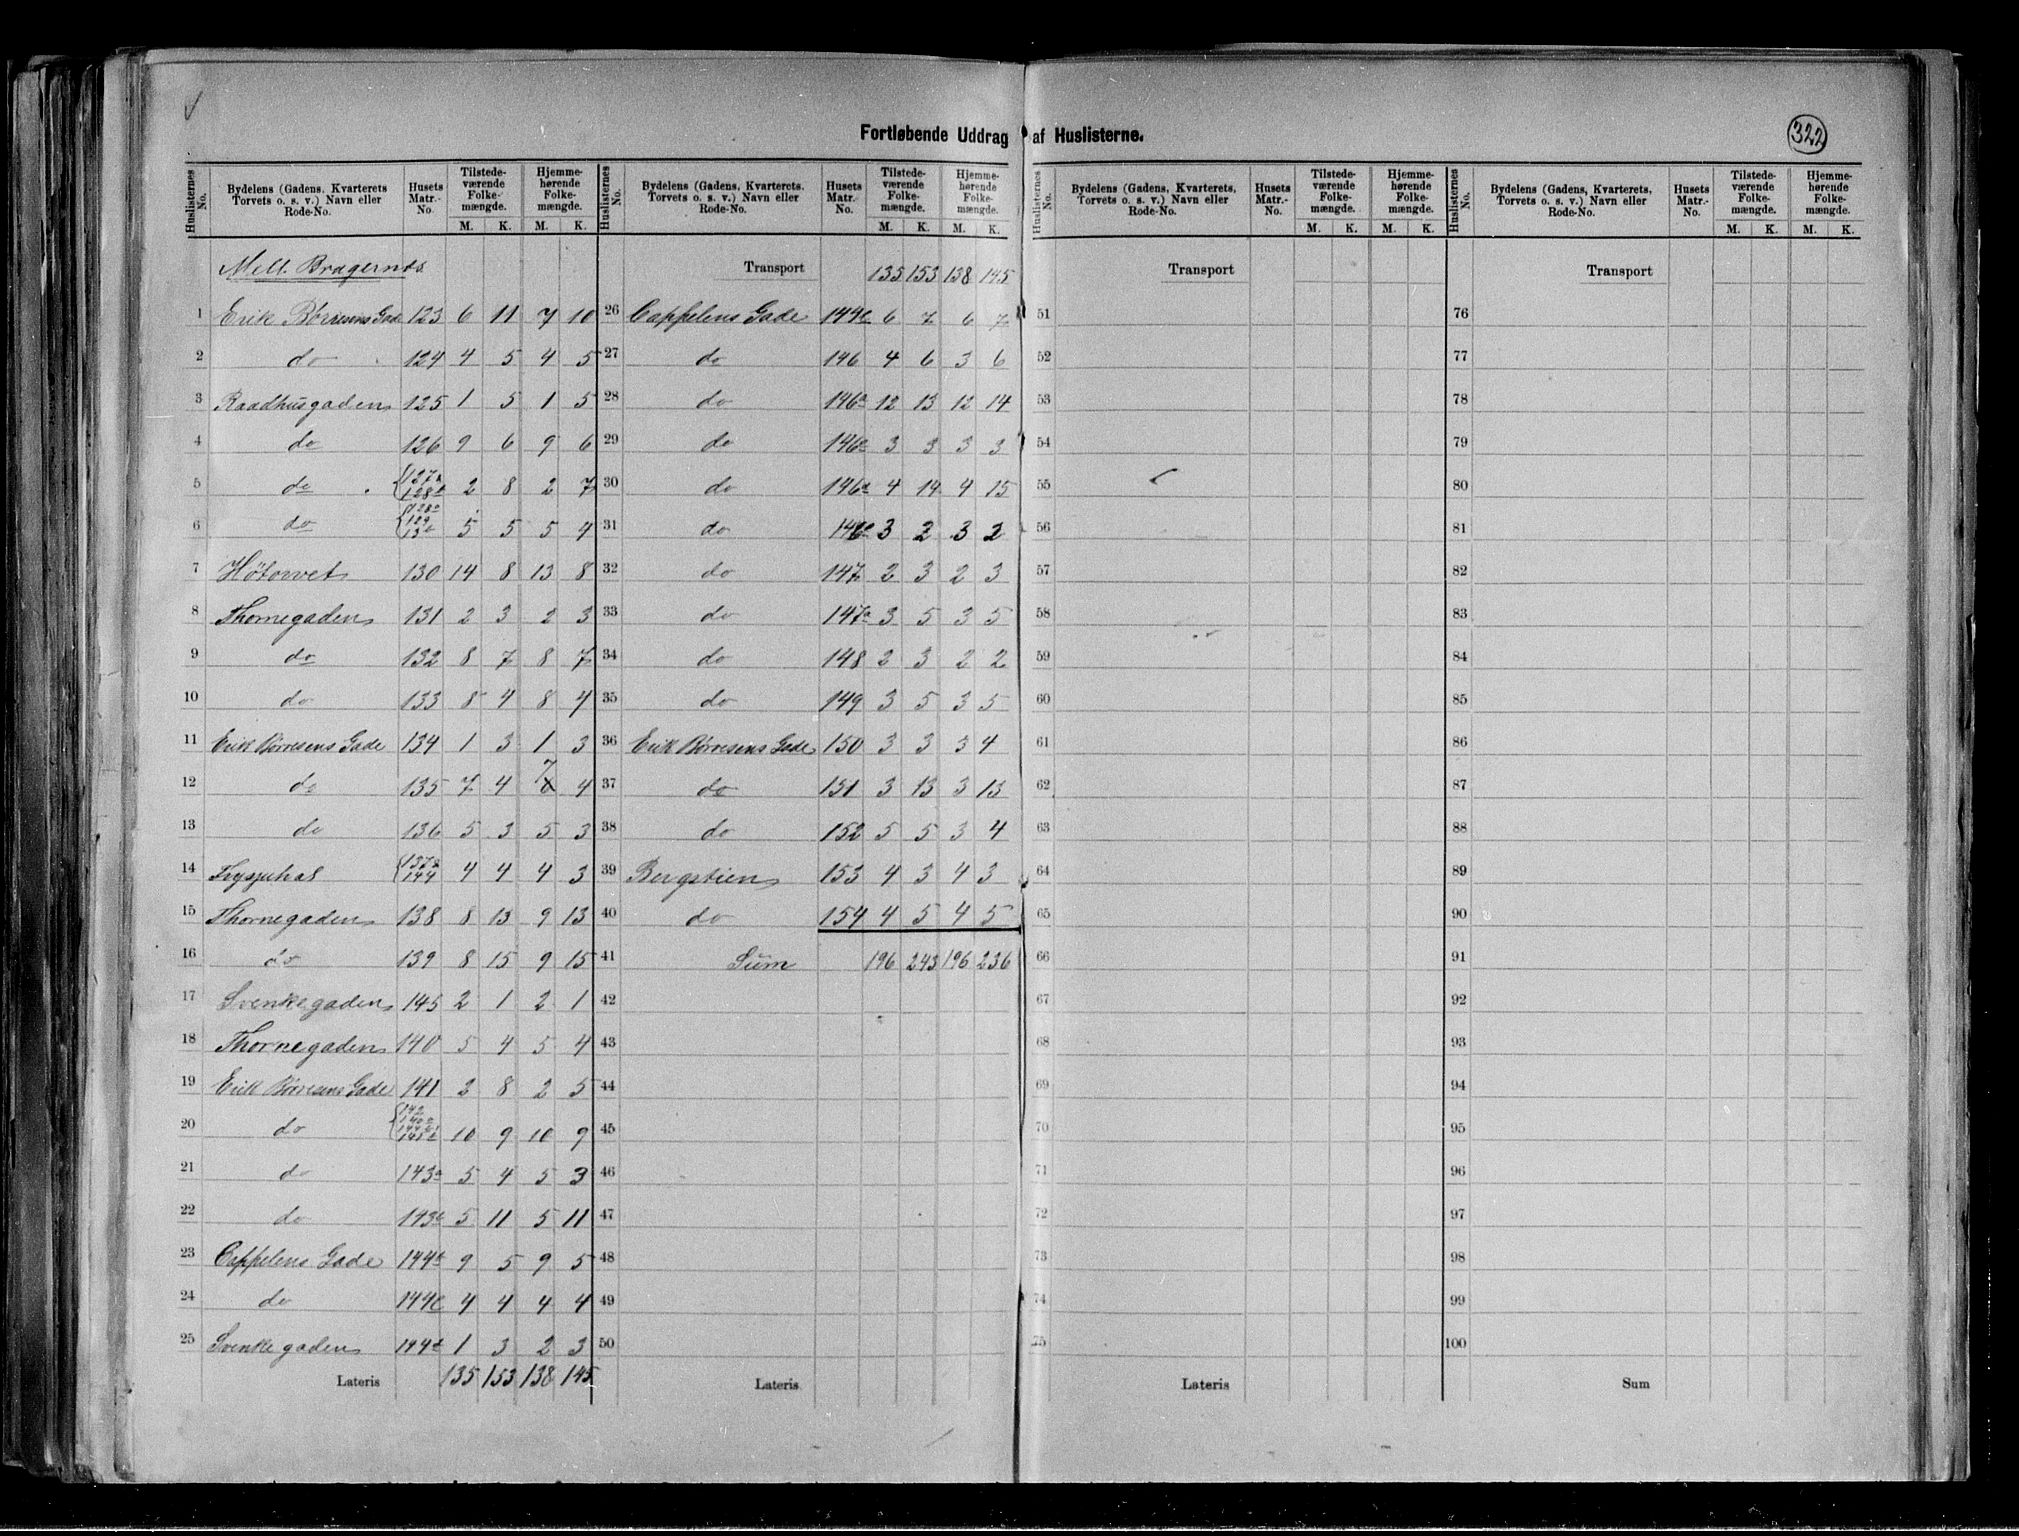 322
Fortløbende Uddrag af Huslisterne.
Huslisternes No. Bydelens (Gadens, Kvarterets Torvets o. s. v.) Navn eller Rode-No. Husets Matr.-No. Tilstede-værende Folke-mængde. M. K. Hjemme-hørende Folke-mængde. M. K.
Mell. Bragernæs
1 Erik Börresens Gade 123 6 11 7 10
2 do 124 4 5 4 5
3 Raadhusgaden 125 1 5 1 5
4 do 126 9 6 9 6
5 do 127a 128b 2 8 2 7
6 do 128a 129 130 5 5 5 4
7 Høtorvet 130 14 8 13 8
8 Thornegaden 131 2 3 2 3
9 do 132 8 7 8 7
10 do 133 8 4 8 4
11 Erik Børresens Gade 134 1 3 1 3
12 do 135 7 4 7 4
13 do 136 5 3 5 3
14 137a 144 4 4 4 3
15 Thornegaden 138 8 13 9 13
16 do 139 8 15 9 15
17 Svenkegaden 145 2 1 2 1
18 Thornegaden 140 5 4 5 4
19 Erik Børresens Gade 141 2 8 2 5
20 do 142 10 9 10 9
21 do 143a 5 4 5 3
22 do 143b 5 11 5 11
23 Cappelens Gade 144b 9 5 9 5
24 do 144c 4 4 4 4
25 Svenkegaden 144d 1 3 2 3
Lateris 135 153 138 145
Huslisternes No. Bydelens (Gadens, Kvarterets. Torvets o. s. v.) Navn eller Rode-No. Husets Matr.-No. Tilstede-værende Folke-mængde. M. K. Hjemme-hørende Folke-mængde. M. K.
Transport 135 153 138 145
26 Cappelens Gade 144e 6 7 6 7
27 do 146 4 6 3 6
28 do 146a 12 13 12 14
29 do 146c 3 3 3 3
30 do 146d 4 14 4 15
31 do 146e 3 2 3 2
32 do 147 2 3 2 3
33 do 147a 3 5 3 5
34 do 148 2 3 2 2
35 do 149 3 5 3 5
36 Erik Børresens Gade 150 3 3 3 4
37 do 151 3 13 3 13
38 do 152 5 5 3 4
39 Bergstien 153 4 3 4 3
40 do 154 4 5 4 5
41 Sum 196 243 196 236
42
43
44
45
46
47
48
49
50
Lateris
Huslisternes No. Bydelens (Gadens, Kvarterets, Torvets o. s. v.) Navn eller Rode-No. Husets Matr.-No. Tilstede-værende Folke-mængde. M. K. Hjemme-hørende Folke-mængde. M. K.
Transport
51
52
53
54
55
56
57
58
59
60
61
62
63
64
65
66
67
68
69
70
71
72
73
74
75
Lateris
Huslisternes No. Bydelens (Gadens, Kvarterets, Torvets o. s. v.) Navn eller Rode-No. Husets Matr.-No. Tilstede-værende Folke-mængde. M. K. Hjemme-hørende Folke-mængde. M. K.
Transport
76
77
78
79
80
81
82
83
84
85
86
87
88
89
90
91
92
93
94
95
96
97
98
99
100
Sum